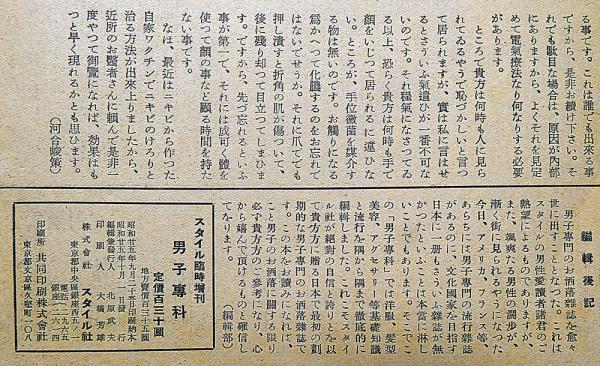 る事です。これは誰でも出来る事
ですから、是非お續け下さい。そ
れでも駄目な場合は、原因が內部
にありますから、よくそれを見定
めて電氣療法なり何なりする必要
があります。
ところで貴方は何時も人に見ら
れてゐるやうで恥づかしいと言つ
て居られますが、實は私に言はせ
るとさういふ氣遣ひが一番不可な
いのです。それ程氣になさつてゐ
る以上、恐らく貴方は何時も手で
顏をいじつて居られるに違ひな
い。ところが、手位黴菌を媒介す
る物は無いのです。お觸りになる
爲かへつて化膿するのをお忘れで
はないでせうか。それに爪ででも
押し潰すと折角の肌が傷ついて、
後に殘り却つて目立つてしまひま
す。ですから、先づ忘れるといふ
事が第一で、それには成可く體を
使つて顏の事など顧る時間を持た
ない事です。
なほ、最近はニキビから作つた
自家ワクチンでニキビのけろりと
治る方法が出來上りましたから、
近所のお醫者さんに賴んで是非一
度やつて御覽になれば、効果はも
つと早く現れるかとも思ひます。
（河合峻策）
編輯後記
男子專門のお洒落雜誌を愈々
世に出すこととなつた。これは
スタイルの男性愛讀者諸君のご
熱望によるものでありますが、
また、颯爽たる男性の濶歩が、
漸く街に見られるやうになつた
今日、アメリカ、フランス等、
あちらにも男子專門の流行雜誌
があるのに、文化國家を目指す
日本に一册もさういふ雜誌が無
かつたといふことは本當に淋し
いことでもあります。そこでこ
の「男子專科」では洋服、髮型
美容、アクセサリー等基礎知識
と流行を隅から隅まで徹底的に
編輯しました。これこそスタイ
ル社が絕對の自信と誇りとを以
て貴方方に贈る日本で最初の劃
期的な男子專門のお洒落雜誌で
す。この本をお讀みになれば、
こと男子のお洒落に關する限り
必ず貴方のご參考になり、心
から嬉んで頂けるものと確信し
てをります。
（編輯部）
スタイル臨時增刊
男子專科
定價百三十圓
地方賣價百三十五圓
昭和廿五年九月二十五日印刷納本
昭和廿五年十月一日發行
編輯兼發行人 北原武夫
印刷人 大橋芳雄
東京都中央區銀座西五ノ一
株式會社 スタイル社
印刷所 共同印刷株式會社
東京都文京區久堅町一〇八